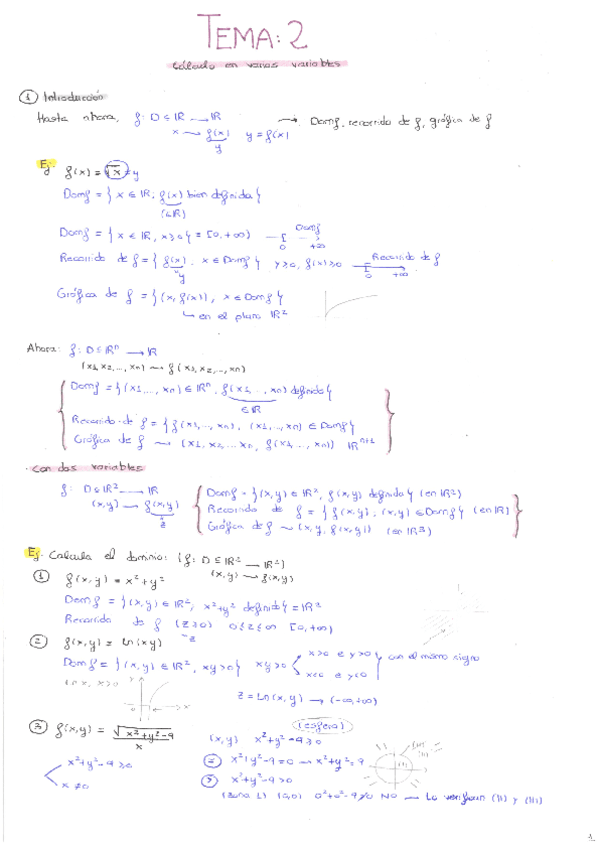 TEMA: 2
Cálculo en varias variables
① Introducción
Hasta ahora, f: D ⊆ IR → IR → Domf, recorrido de f, gráfica de f
x → f(x) y = f(x)
y
Ej. f(x) = √x = y
Domf = { x ∈ IR; f(x) bien definida }
(∈ IR)
Domf = { x ∈ IR, x ≥ 0 } = [0, +∞) Domf
0 +∞
Recorrido de f = { f(x), x ∈ Domf } y ≥ 0, f(x) ≥ 0 Recorrido de f
y 0 +∞
Gráfica de f = { (x, f(x)), x ∈ Domf }
↳ en el plano IR²
Ahora: f: D ⊆ IRⁿ → IR
(x1, x2, ..., xn) → f(x1, x2, ..., xn)
Domf = { (x1, ..., xn) ∈ IRⁿ, f(x1, ..., xn) definida }
∈ IR
Recorrido de f = { f(x1, ..., xn), (x1, ..., xn) ∈ Domf }
Gráfica de f → (x1, x2, ... xn, f(x1, ..., xn)) IRⁿ⁺¹
· con dos variables
f: D ⊆ IR² → IR
(x,y) → f(x,y)
z
Domf = { (x,y) ∈ IR², f(x,y) definida } (en IR²)
Recorrido de f = { f(x,y), (x,y) ∈ Domf } (en IR)
Gráfica de f ~ (x, y, f(x,y)) (en IR³)
Ej. Calcula el dominio: (f: D ⊆ IR² → IR²)
(x,y) → f(x,y)
① f(x,y) = x² + y²
Domf = { (x,y) ∈ IR², x² + y² definida } = IR²
Recorrido de f (z ≥ 0) [0, +∞)
② f(x,y) = ln(xy)
Domf = { (x,y) ∈ IR², xy > 0 } xy > 0 x > 0 e y > 0
x < 0 e y < 0
con el mismo signo
ln x, x > 0
z = Ln(x,y) → (-∞, +∞)
③ f(x,y) = √x² + y² - 9 / x
(esfera)
x² + y² - 9 ≥ 0
x ≠ 0
(x,y) x² + y² - 9 ≥ 0
= x² + y² - 9 = 0 → x² + y² = 9
> x² + y² - 9 > 0
(Zona I) (0,0) 0² + 0² - 9 > 0 NO → Lo verifican (II) y (III)
1